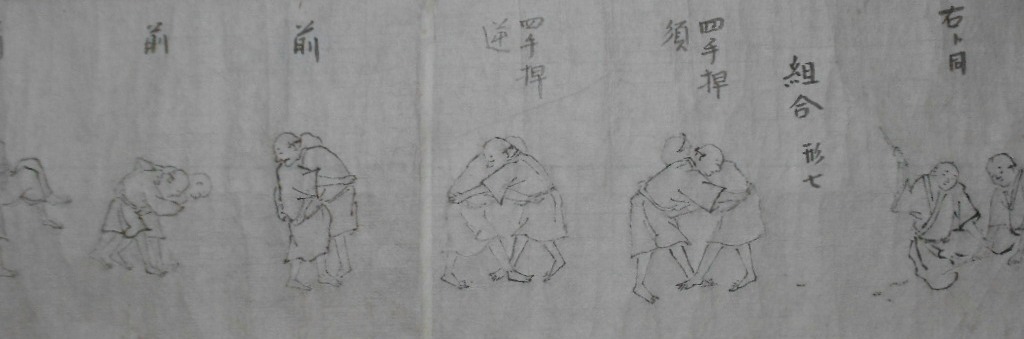 右ト同
組合 形七
四手捍
須
四手捍
逆
前
前